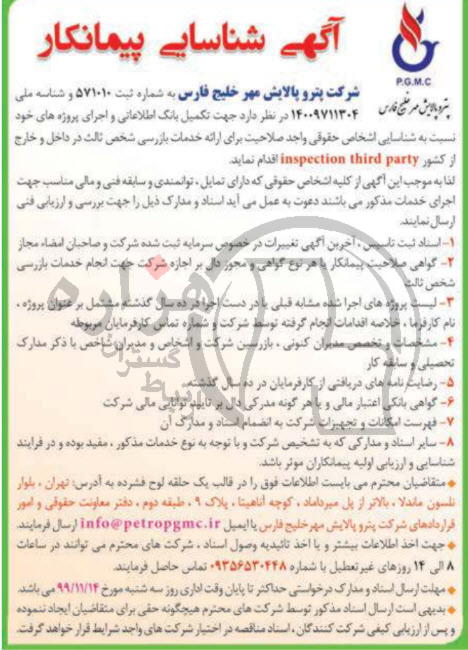 آگهی شناسایی پیمانکار
P.G.M.C
پتروپالایش مهر خلیج فارس
شرکت پترو پالایش مهر خلیج فارس به شماره ثبت ۵۷۱۰۱۰ و شناسه ملی
۱۴۰۰۹۷۱۱۳۰۴ در نظر دارد جهت تکمیل بانک اطلاعاتی و اجرای پروژه های خود
نسبت به شناسایی اشخاص حقوقی واجد صلاحیت برای ارائه خدمات بازرسی شخص ثالث در داخل و خارج
از کشور inspection third party اقدام نماید.
لذا به موجب این آگهی از کلیه اشخاص حقوقی که دارای تمایل ، توانمندی و سابقه فنی و مالی مناسب جهت
اجرای خدمات مذکور می باشند دعوت به عمل می آید اسناد و مدارک ذیل را جهت بررسی و ارزیابی فنی
ارسال نمایند.
۱- اسناد ثبت تاسیس ، آخرین آگهی تغییرات در خصوص سرمایه ثبت شده شرکت و صاحبان امضاء مجاز
۲- گواهی صلاحیت پیمانکار یا هر نوع گواهی و مجوز دال بر اجازه شرکت جهت انجام خدمات بازرسی
شخص ثالث
۳- لیست پروژه های اجرا شده مشابه قبلی یا در دست اجرا در ده سال گذشته مشتمل بر عنوان پروژه ،
نام کارفرما ، خلاصه اقدامات انجام گرفته توسط شرکت و شماره تماس کارفرمایان مربوطه
۴- مشخصات و تخصص مدیران کنونی ، بازرسین شرکت و اشخاص و مدیران شاخص با ذکر مدارک
تحصیلی و سابقه کار
۵- رضایت نامه های دریافتی از کارفرمایان در ده سال گذشته.
۶- گواهی بانکی اعتبار مالی و یا هر گونه مدرکی دال بر تایید توانایی مالی شرکت
۷- فهرست امکانات و تجهیزات شرکت به انضمام اسناد و مدارک آن
۸- سایر اسناد و مدارکی که به تشخیص شرکت و با توجه به نوع خدمات مذکور ، مفید بوده و در فرایند
شناسایی و ارزیابی اولیه پیمانکاران موثر باشد.
متقاضیان محترم می بایست اطلاعات فوق را در قالب یک حلقه لوح فشرده به آدرس: تهران ، بلوار
نلسون ماندلا ، بالاتر از پل میرداماد ، کوچه آناهیتا ، پلاک ۹ ، طبقه دوم ، دفتر معاونت حقوقی و امور
قراردادهای شرکت پترو پالایش مهر خلیج فارس یا ایمیل info@petropgmc.ir ارسال فرمایند.
جهت اخذ اطلاعات بیشتر و یا اخذ تائیدیه وصول اسناد ، شرکت های محترم می توانند در ساعات
۸ الی ۱۴ روزهای غیرتعطیل با شماره ۰۹۳۵۶۵۳۰۴۴۸ تماس حاصل فرمایند.
مهلت ارسال اسناد و مدارک درخواستی حداکثر تا پایان وقت اداری روز سه شنبه مورخ ۹۹/۱۱/۱۴ می باشد.
بدیهی است ارسال اسناد مذکور توسط شرکت های محترم هیچگونه حقی برای متقاضیان ایجاد ننموده
و پس از ارزیابی کیفی شرکت کنندگان ، اسناد مناقصه در اختیار شرکت های واجد شرایط قرار خواهد گرفت.
هزاره
گستران
ارتباط